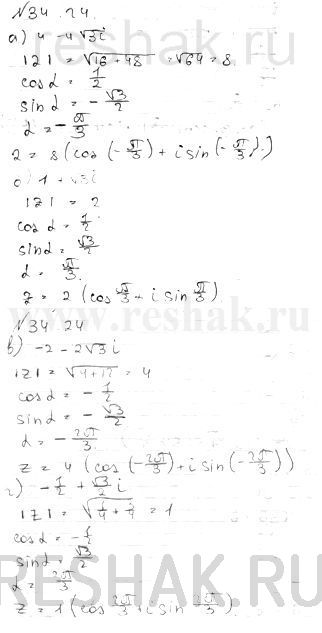 №34.24.
а) 4 - 4√3i
|z| = √16+48 = √64 = 8
cos α = 1/2
sin α = -√3/2
α = -π/3
z = 8 (cos (-π/3) + i sin (-π/3))
б) 1 + √3i
|z| = 2
cos α = 1/2
sin α = √3/2
α = π/3
z = 2 (cos π/3 + i sin π/3).
www.reshak.ru
№34.24
в) -2 - 2√3i
|z| = √4+12 = 4
cos α = -1/2
sin α = -√3/2
α = -2π/3
z = 4 (cos (-2π/3) + i sin (-2π/3))
г) -1/2 + √3/2 i
|z| = √1/4+3/4 = 1
cos α = -1/2
sin α = √3/2
α = 2π/3
RESHAK.RU
z = 1 (cos 2π/3 + i sin 2π/3)